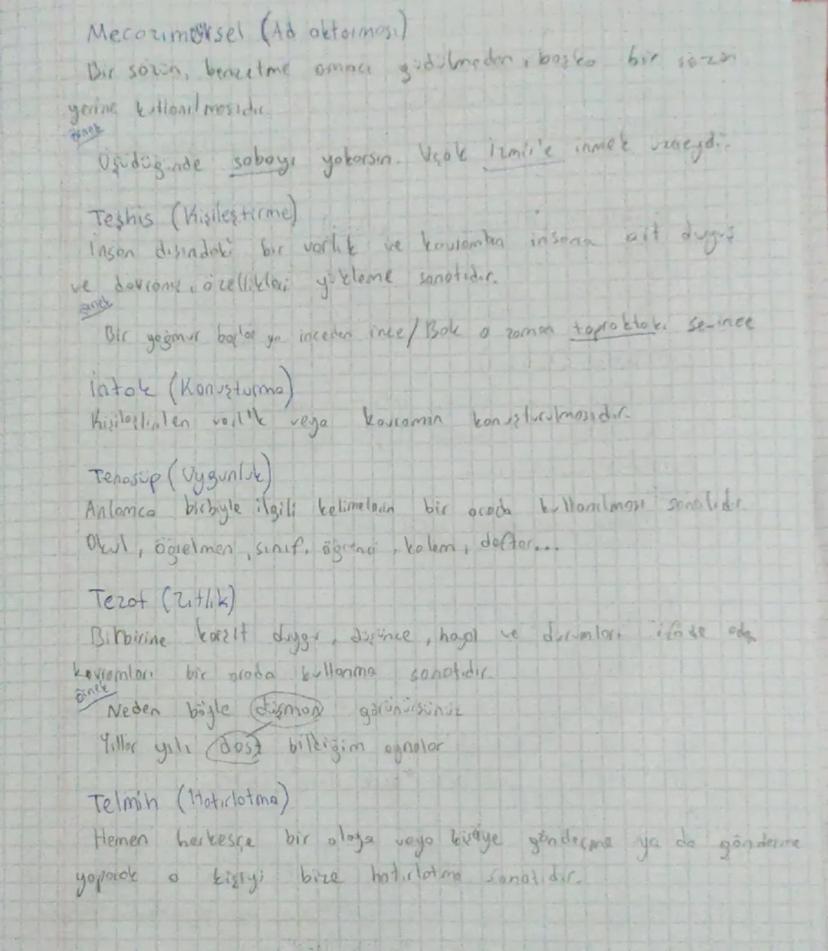 Mecazımürsel (Ad aktarması)
Bir sözün, benzetme amacı güdülmeden, başka bir sözün
yerine kullanılmasıdır.
örnek
Üşüdüğünde sobayı yakarsın. Uçak İzmir'e inmek üzereydi.
Teşhis (Kişileştirme)
İnsan dışındaki bir varlık ve kavramlara insana ait duygu
ve davranış, özellikleri yükleme sanatıdır.
örnek
Bir yağmur başlar ya inceden ince/Bak o zaman topraktaki sevince
İntak (Konuşturma)
Kişileştirilen varlık veya kavramın konuşturulmasıdır.
Tenasüp (Uygunluk)
Anlamca birbiyle ilgili kelimelerin bir arada kullanılması sanatıdır.
Okul, öğretmen, sınıf, öğrenci, kalem, defter...
Tezat (Zıtlık)
Birbirine karşıt duygu, düşünce, hayal ve durumları ifade eden
kavramları bir arada kullanma sanatıdır.
örnek
Neden böyle düşman görünürsünüz
Yıllar yılı dost bildiğim aynalar
Telmih (Hatırlatma)
Hemen herkesçe bir olaya veya kişiye gönderme ya da gönderme
yaparak o kişiyi bize hatırlatma sanatıdır.